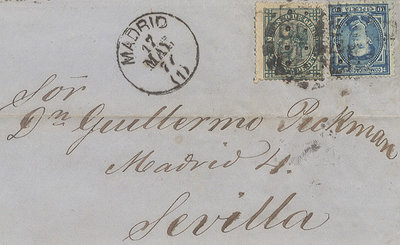 MADRID
17
MAY
77
(1)
Sor
Dn Guillermo Peckman
Madrid 4.
Sevilla